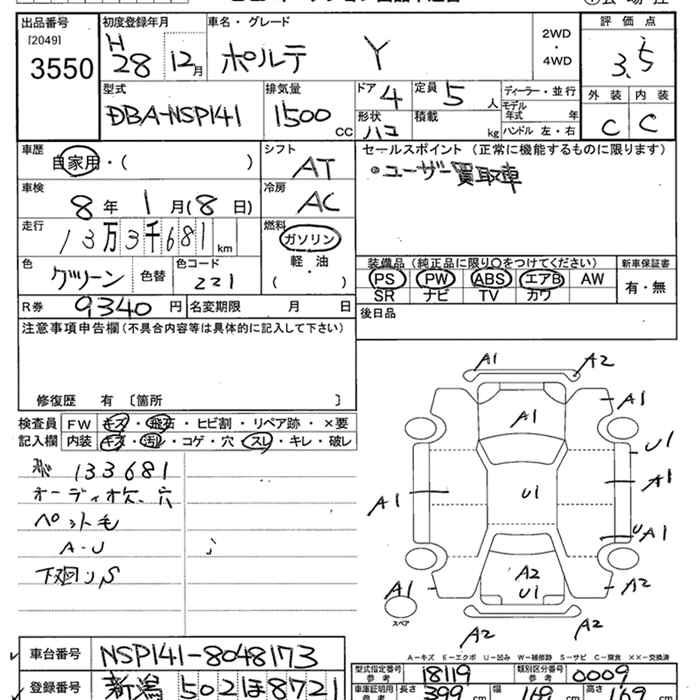 出品番号 初度登録年月 車名・グレード 2WD・4WD 評価点
[2049] 3550 H28 12月 ポルテ Y 3.5
型式 排気量 ドア 4 定員 5人 ディーラー・並行 外装 内装
DBA-NSP141 1500cc 形状 ハコ 積載 kg モデル年式 年 C C
ハンドル 左・右
車歴 自家用・( ) シフト AT セールスポイント(正常に機能するものに限ります)
車検 8年 1月(8日) 冷房 AC ◎ユーザー買取車
走行 13万3千681km 燃料 ガソリン 軽・油 ( )
色 グリーン 色替 色コード 221
装備品(純正品に限り○をつけてください) 新車保証書
PS PW ABS エアB AW 有・無
SR ナビ TV カワ
R券 9340円 名変期限 月 日 後日品
注意事項申告欄(不具合内容等は具体的に記入して下さい)
修復歴 有〔箇所 〕
検査員 FW キズ・飛石・ヒビ割・リペア跡・×要
記入欄 内装 キズ・汚れ・コゲ・穴・スレ・キレ・破レ
133681
オーディオ欠、穴
ペット毛
A・U
下廻りS
A1 A2
A1 A1
U1
A1 U1 A1
UA1
A2
A1 U1 A2
スペア
A2 A2
A-キズ E-エクボ U-凹み W-補修跡 S-サビ C-腐食 ××-交換済
車台番号 NSP141-8048173
型式指定番号 参考 18119 類別区分番号 参考 0009
登録番号 新潟 502 ほ 8721
車庫証明用 参考 長さ 399cm 幅 169cm 高さ 169cm